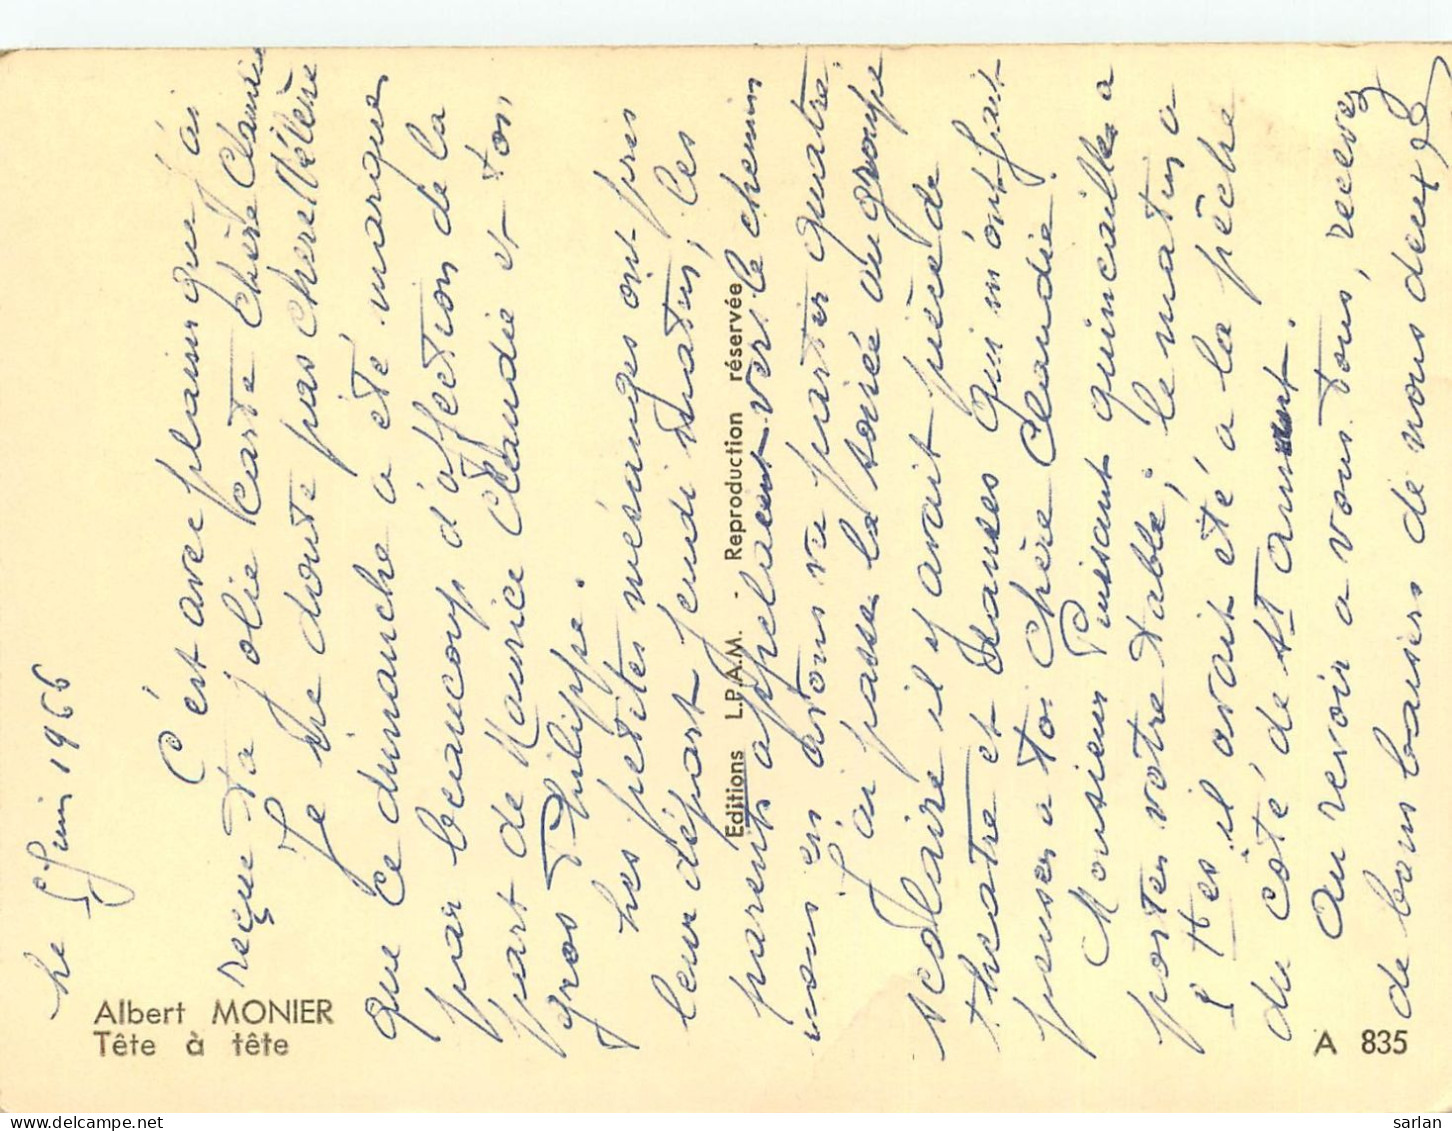 Le 5 Juin 1966
C'est avec plaisir que j'ai
reçue ta jolie carte chère Claudie
Je ne doute pas chère Hélène
que ce dimanche a été marque
par beaucoup d'affection de la
part de Maurice Claudie et ton
gros Philippe.
Les petites mésanges ont pris
leur départ jeudi matin, les
parents appelaient vers le chemin
nous en avons vu partir quatre.
J'ai passé la soirée au groupe
scolaire il y avait pièce de
theatre et danses qui m'ont fait
penser a toi Chère Claudie.
Monsieur Puissant quincailler a
porter votre table, le matin a
5 Hes il avait été a la pêche
du côté de St Amant.
Au revoir a vous tous, recevez
de bons baisers de nous deux
Albert MONIER
Tête à tête
Editions L.P.A.M. - Reproduction réservée
A 835
sarlan